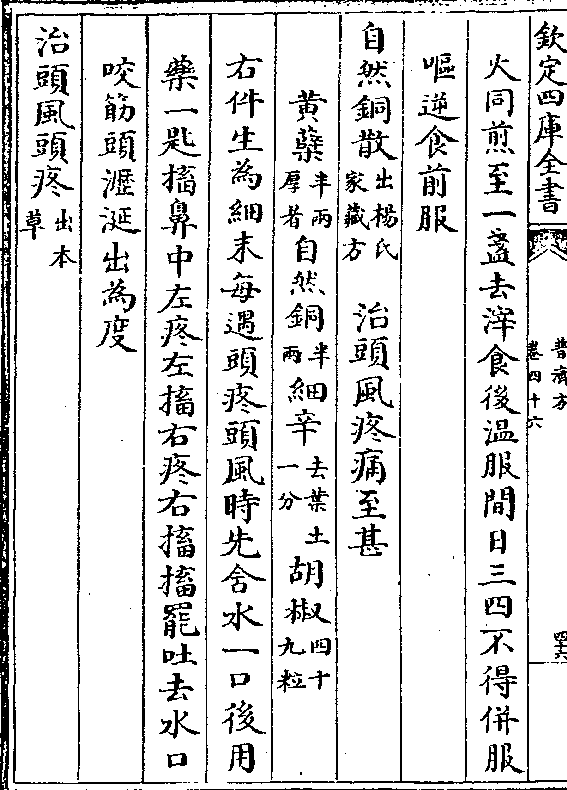 欽定四庫全書
普濟方
卷四十六
四六
火同煎至一盞去滓食後温服間日三四不得併服
嘔逆食前服
自然銅散出楊氏家藏方 治頭風疼痛至甚
黄蘗半兩厚者自然銅半兩細辛去葉土一分胡椒四十九粒
右件生為細末每遇頭疼頭風時先含水一口後用
藥一匙搐鼻中左疼左搐右疼右搐搐罷吐去水口
咬筋頭瀝涎出為度
治頭風頭疼出本草